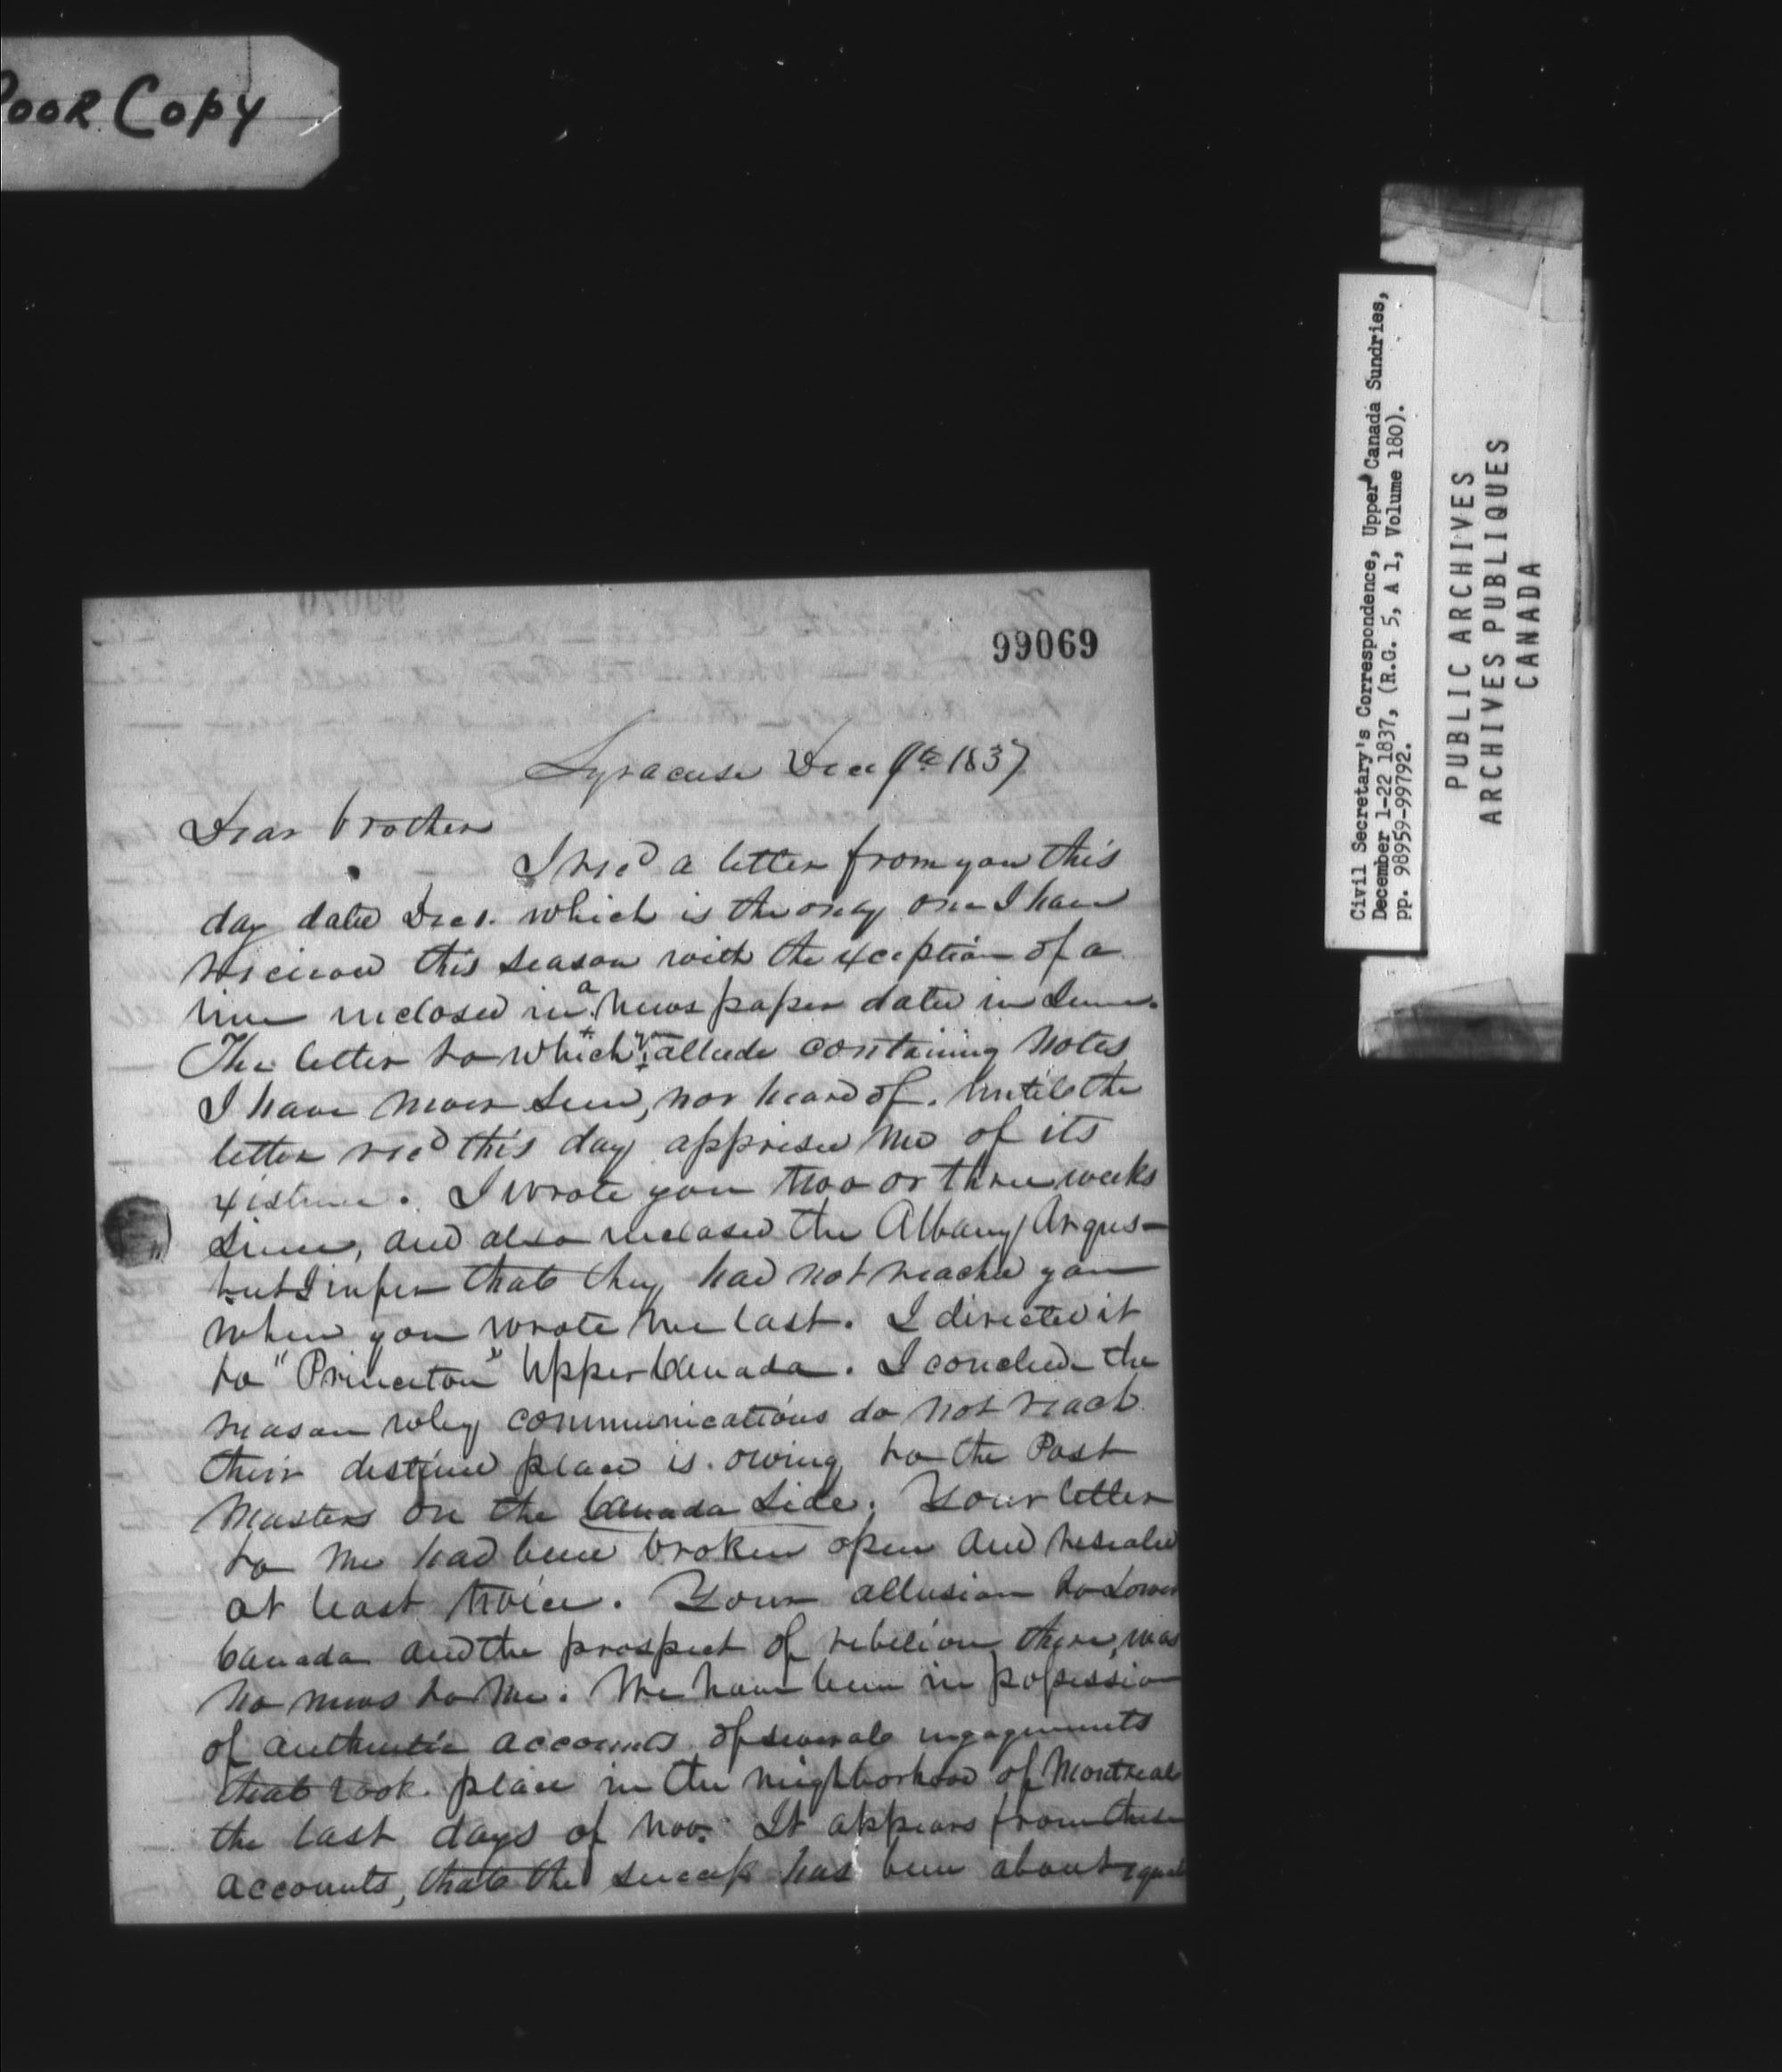 Poor Copy
99069
Syracuse Dec 9th 1837
Dear brother
I recd a letter from you this
day dated Dec 1. which is the only one I have
received this season with the exception of a
line inclosed in a News paper dated in June.
The letter to which yr allude containing notes
I have never seen, nor heard of. Untile the
letter recd this day apprised me of its
existence. I wrote you two or three weeks
since, and also inclosed the Albany Argus—
but I infer that they had not reached you
when you wrote me last. I directed it
to "Princeton" Upper Canada. I conclude the
reason why communications do not reach
their destined place is owing to the Post
Masters on the Canada side. Your letter
to me had been broken open and resealed
at least twice. Your allusion to Lower
Canada and the prospect of rebelion there, was
no news to me. We have been in possession
of authentic accounts of severale engagements
that took place in the neighborhood of Montreal
the last days of Nov. It appears from these
accounts, that the success has been about equal
Civil Secretary's Correspondence, Upper Canada Sundries,
December 1-22 1837, (R.G. 5, A 1, Volume 180).
pp. 98959-99792.
PUBLIC ARCHIVES
ARCHIVES PUBLIQUES
CANADA